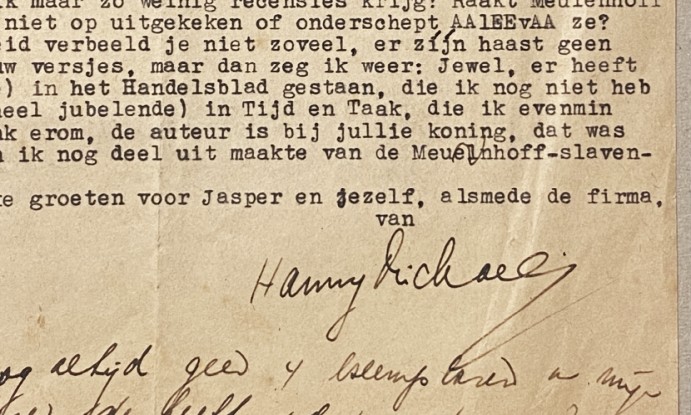 ik maar zo weinig recensies krijg? Raakt Meulenhoff
niet op uitgekeken of onderschept AAlEEvAA ze?
eid verbeeld je niet zoveel, er zíjn haast geen
uw versjes, maar dan zeg ik weer: Jewel, er heeft
) in het Handelsblad gestaan, die ik nog niet heb
heel jubelende) in Tijd en Taak, die ik evenmin
nk erom, de auteur is bij jullie koning, dat was
n ik nog deel uit maakte van de Meuelnhoff-slaven-
te groeten voor Jasper en jezelf, alsmede de firma,
van
Hanny Michaelis
og altijd geen 4